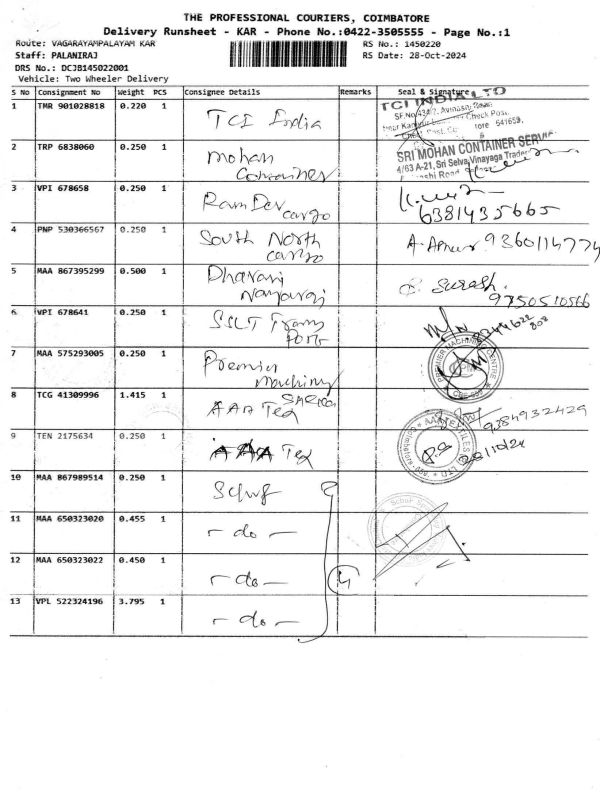 THE PROFESSIONAL COURIERS, COIMBATORE
Delivery Runsheet - KAR - Phone No.:0422-3505555 - Page No.:1
Route: VAGARAYAMPALAYAM KAR
RS No.: 1450220
Staff: PALANIRAJ
RS Date: 28-Oct-2024
DRS No.: DCJB145022001
Vehicle: Two Wheeler Delivery
S No Consignment No Weight PCS Consignee Details Remarks Seal & Signature
1 TMR 901028818 0.220 1 TCI India
TCI INDIA LTD
2 TRP 6838060 0.250 1 Mohan Container
SRI MOHAN CONTAINER
4/63 A-21, Sri Selva Vinayaga
3 VPI 678658 0.250 1 Ram Dev cargo
6381435665
4 PNP 530366567 0.250 1 South North cargo
9360114774
5 MAA 867395299 0.500 1 Dharani
S. Suresh.
9750510566
6 VPI 678641 0.250 1 SSLT Trans
7 MAA 575293005 0.250 1 Premier
PREMIER MACHINING CENTRE
8 TCG 41309996 1.415 1 AAA Tex
9384932429
9 TEN 2175634 0.250 1 AAA Tex
28/10/24
10 MAA 867989514 0.250 1
11 MAA 650323020 0.455 1 - do -
12 MAA 650323022 0.450 1 - do - 4
13 VPL 522324196 3.795 1 - do -